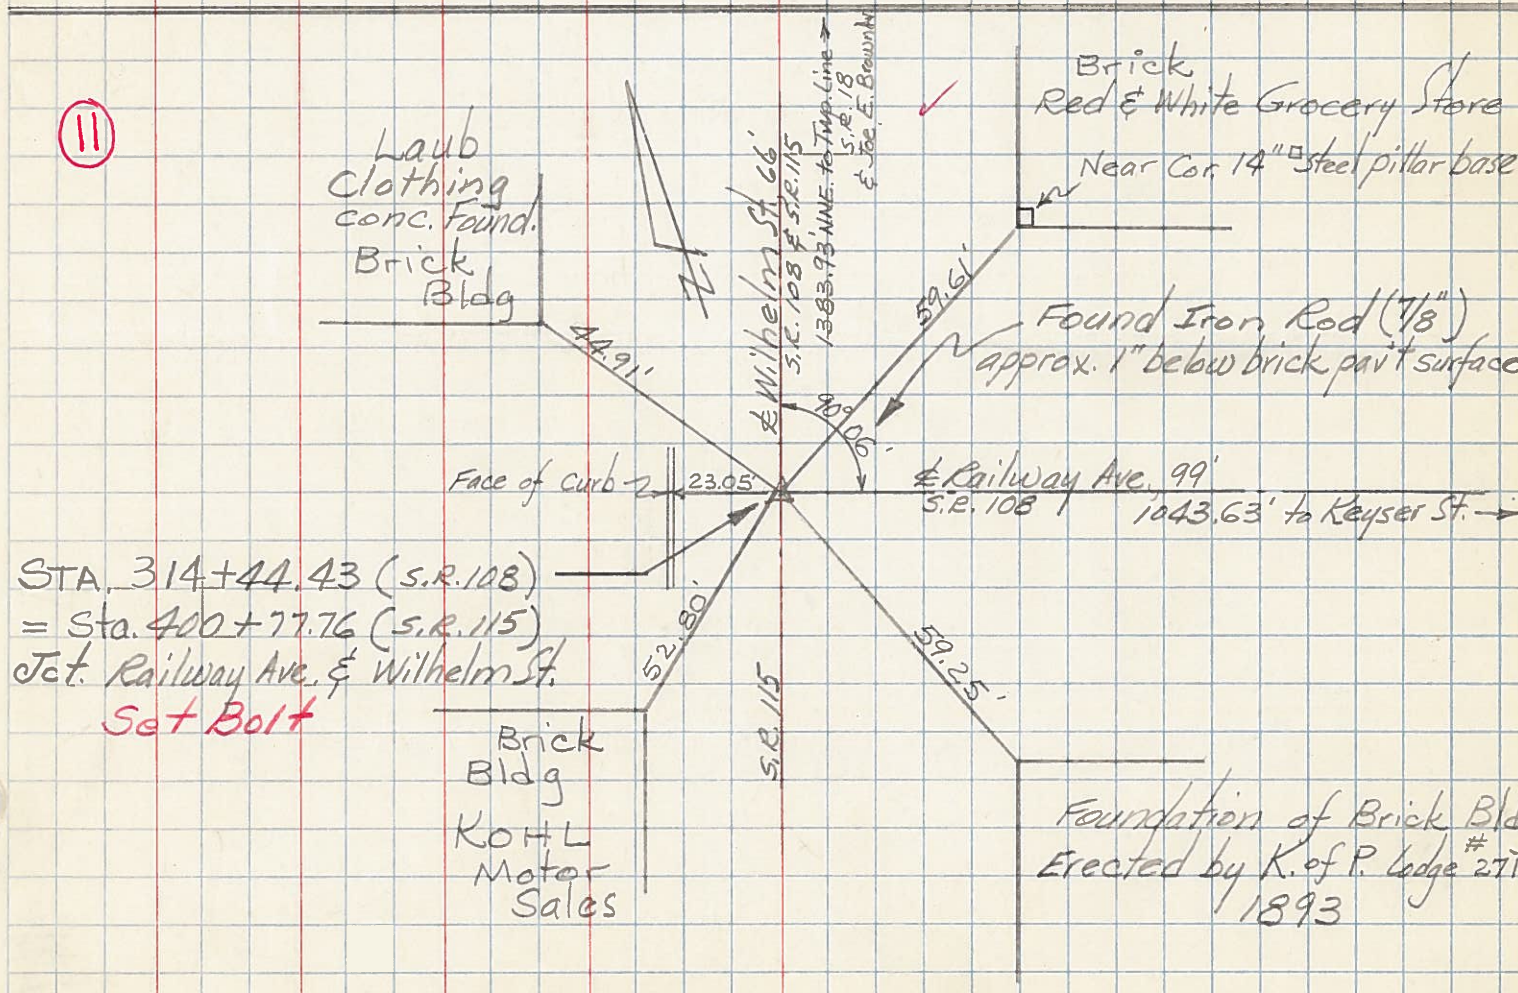 11
Laub
Clothing
conc. Found.
Brick
Bldg
44.91'
N
℄ Wilhelm St. 66'
S.R. 108 & S.R. 115
1383.93' NNE. to Twp. Line →
S.R. 18
& Joe E. Brown Av
Brick
Red & White Grocery Store
Near Cor. 14"□ steel pillar base
59.61'
Found Iron Rod (7/8")
approx. 1" below brick pav't surface
90° 06'
Face of Curb
23.05'
℄ Railway Ave., 99'
S.R. 108
1043.63' to Keyser St. →
STA. 314+44.43 (S.R. 108)
= Sta. 400+77.76 (S.R. 115)
Jct. Railway Ave. & Wilhelm St.
Set Bolt
52.80'
S.R. 115
59.25'
Brick
Bldg
KOHL
Motor
Sales
Foundation of Brick Bld
Erected by K. of P. Lodge #271
1893